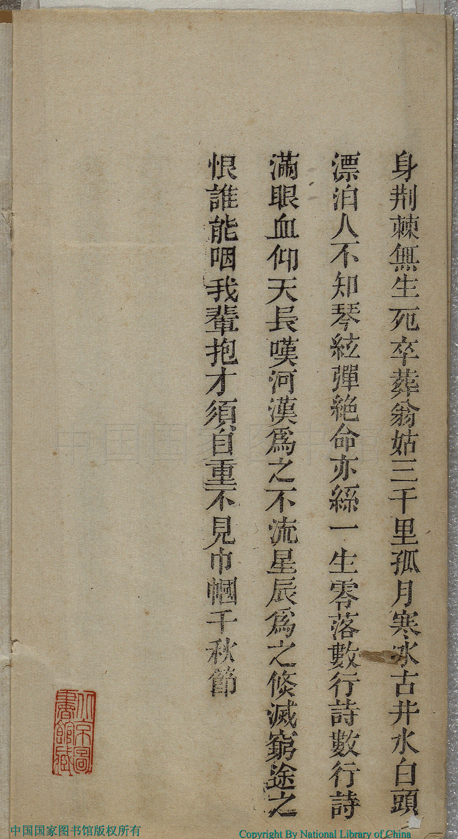 身荆棘無生死卒葬翁姑三千里孤月寒冰古井水白頭
漂泊人不知琴絃彈絶命亦絲一生零落數行詩數行詩
滿眼血仰天長嘆河漢爲之不流星辰爲之倐滅窮途之
恨誰能咽我輩抱才須自重不見巾幗千秋節
中国国家图书馆版权所有
Copyright By National Library of China